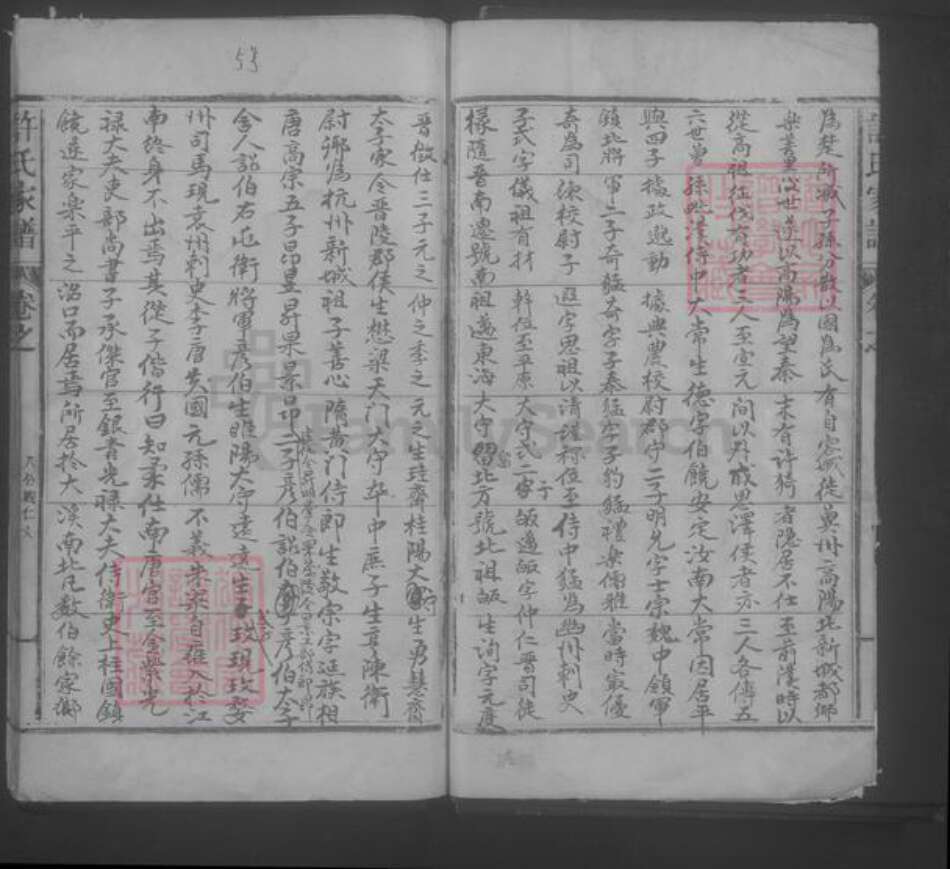 為楚所滅子孫分散以國為氏有自容城徙冀州高陽北新城都鄉
樂善里以世遂以高陽為望秦末有許猗者隱居不仕至前漢時以
從高祖征伐有功者三人至宣元間以列戚恩澤侯者亦三人各傳五
六世曾孫毗漢侍中大常生德字伯饒安定汝南大常因居平
輿四子據政勉動據典農校尉郡守二子明允字士宗魏中領軍
鎮北將軍二子奇猛奇字子泰猛字子豹猛禮樂儒雅當時最優
奇為司隸校尉子遐字思祖以清談稱位至侍中猛為幽州刺史
子式字儀祖有材幹位至平原大守式二子皈邁皈字仲仁晉司徒
椽隨晉南遷號南祖邁東海大守留北方號北祖皈生詢字元度
晉徵仕三子元之仲之季之元之生珪齊桂陽大守生勇慧齊
太子家令晉陵郡侯生懋梁天門大守卒中庶子生亨陳衛
尉鄉為杭州新城祖子善心隋黃門侍郎生敬宗字延族相
唐高宗五子昂昱昇果景昂二子彥伯詔伯彥伯太子
舍人詔伯右屯衛將軍彥伯生睢陽大守遠遠生玫現玫婺
州司馬現袁州刺史李唐失國元孫儒不義朱梁自雍入於江
南終身不出焉其從子儋行曰知柔仕南唐官至金紫光
祿大夫吏部尚書子承傑官至銀青光祿大夫侍衛史上柱國鎮
饒遂家樂平之沿口而居焉所居於大溪南北凡數伯餘家鄉
許氏家譜
卷之一
53